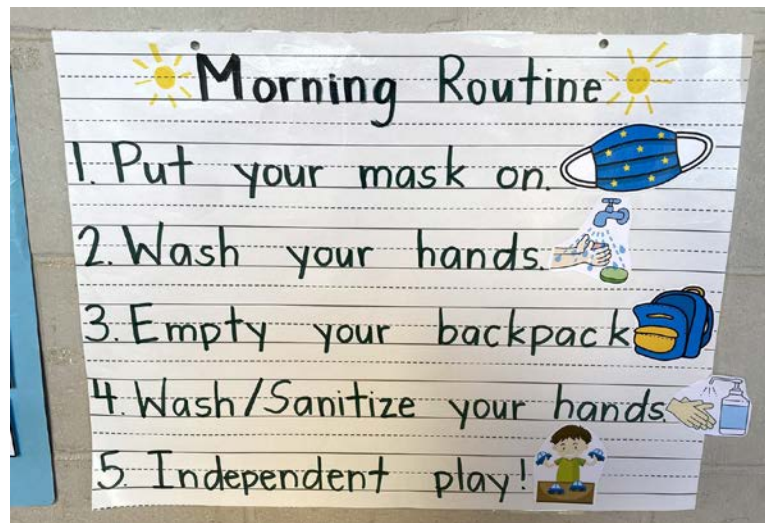 Morning Routine
1. Put your mask on.
2. Wash your hands.
3. Empty your backpack
4. Wash/Sanitize your hands.
5. Independent play!